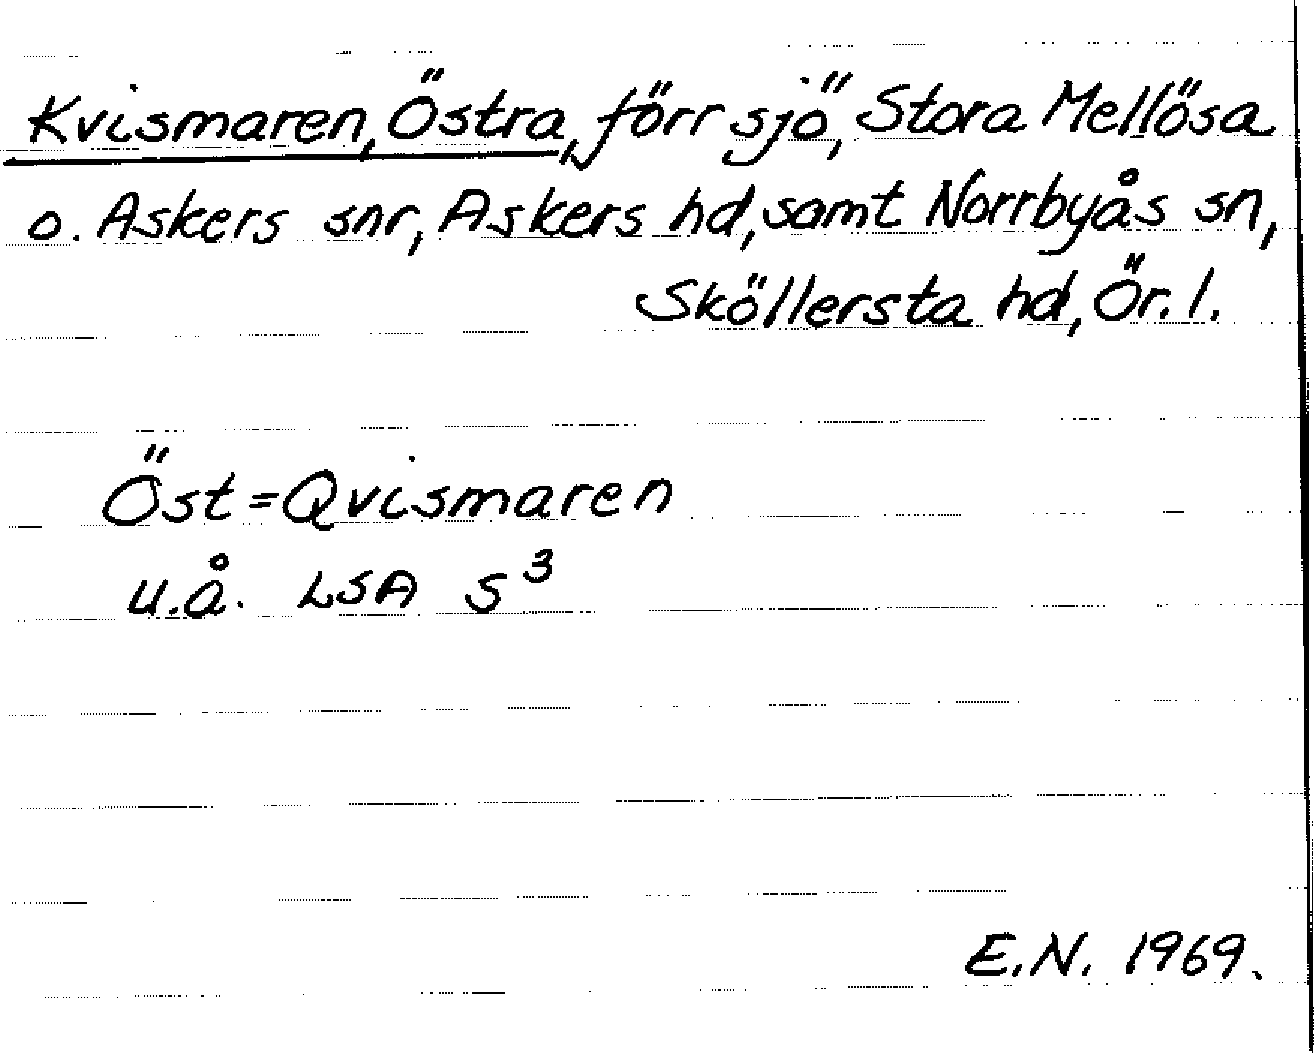 Kvismaren, Östra, förr sjö, Stora Mellösa
o. Askers snr, Askers hd, samt Norrbyås sn,
Sköllersta hd, Ör. l.
Öst=Qvismaren
u.å. LSA S³
E.N. 1969.